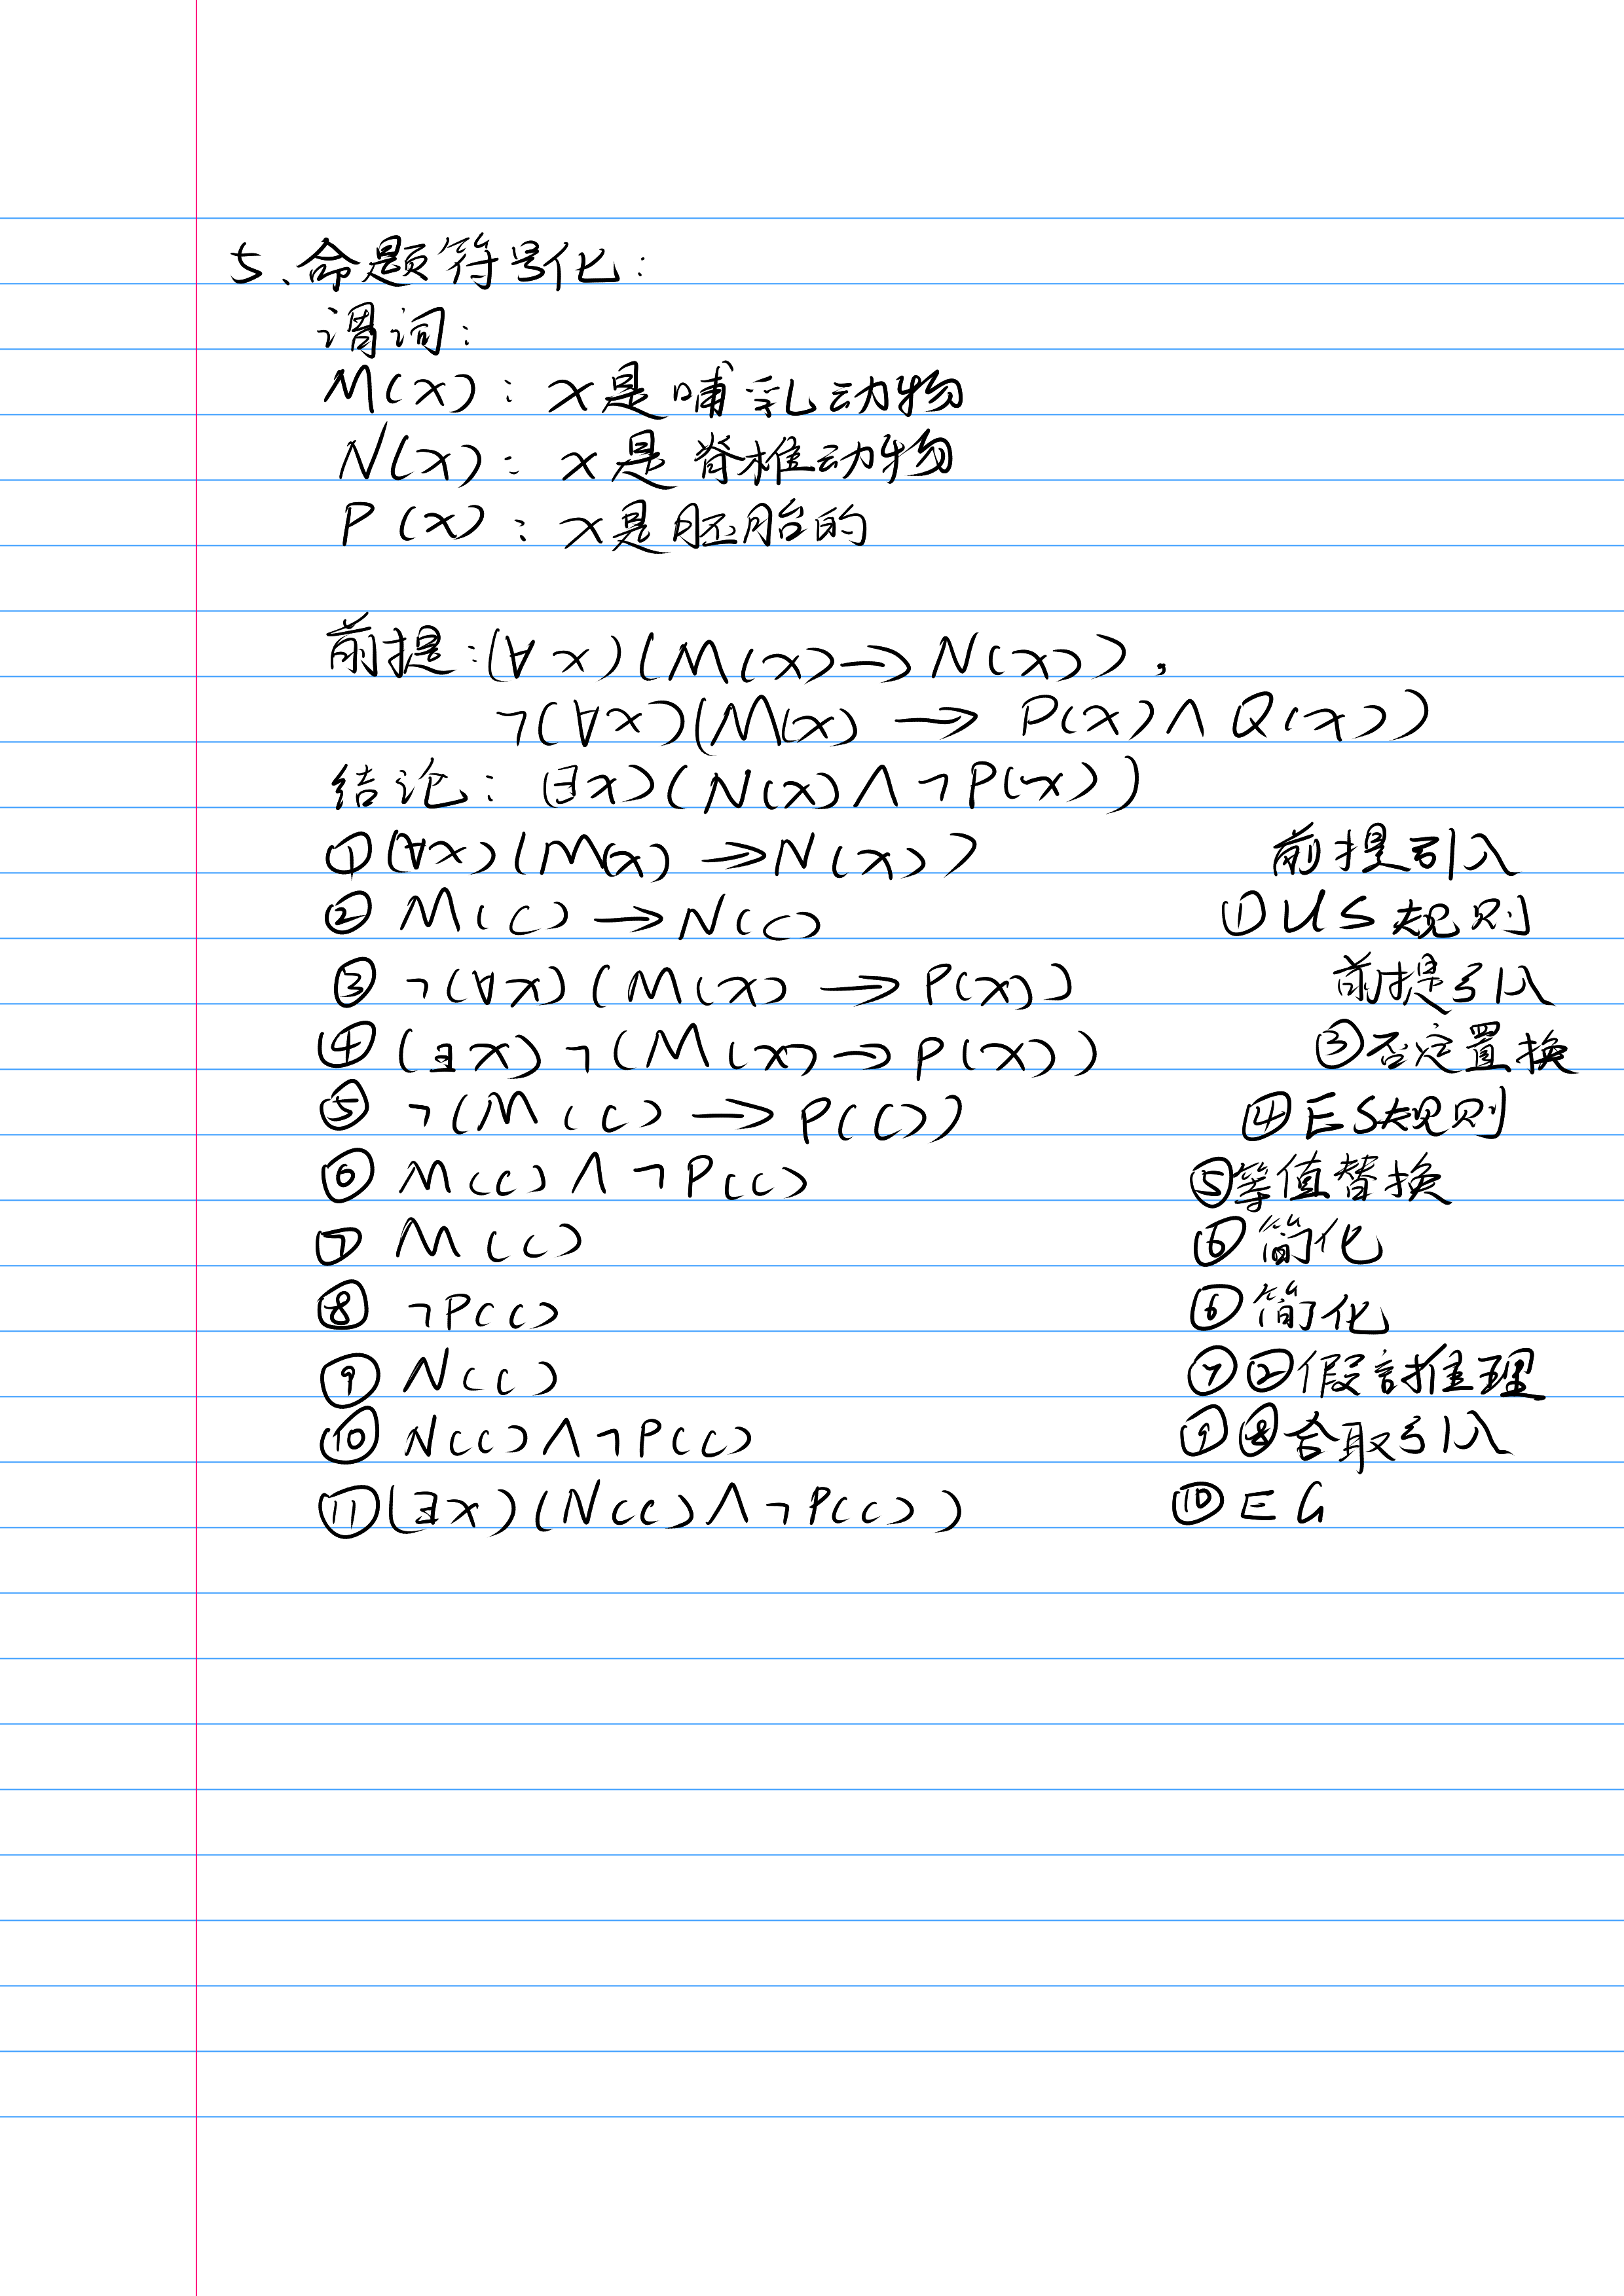 5、命题符号化：
谓词：
M(x)：x是哺乳动物
N(x)：x是脊椎动物
P(x)：x是胚胎的
前提：(∀x)(M(x)→N(x)),
¬(∀x)(M(x)→P(x)∧Q(x))
结论：(∃x)(N(x)∧¬P(x))
①(∀x)(M(x)→N(x)) 前提引入
②M(c)→N(c) ①US规则
③¬(∀x)(M(x)→P(x)) 前提引入
④(∃x)¬(M(x)→P(x)) ③否定置换
⑤¬(M(c)→P(c)) ④ES规则
⑥M(c)∧¬P(c) ⑤等值替换
⑦M(c) ⑥简化
⑧¬P(c) ⑥简化
⑨N(c) ⑦②假言推理
⑩N(c)∧¬P(c) ⑨⑧合取引入
⑪(∃x)(N(c)∧¬P(c)) ⑩EG